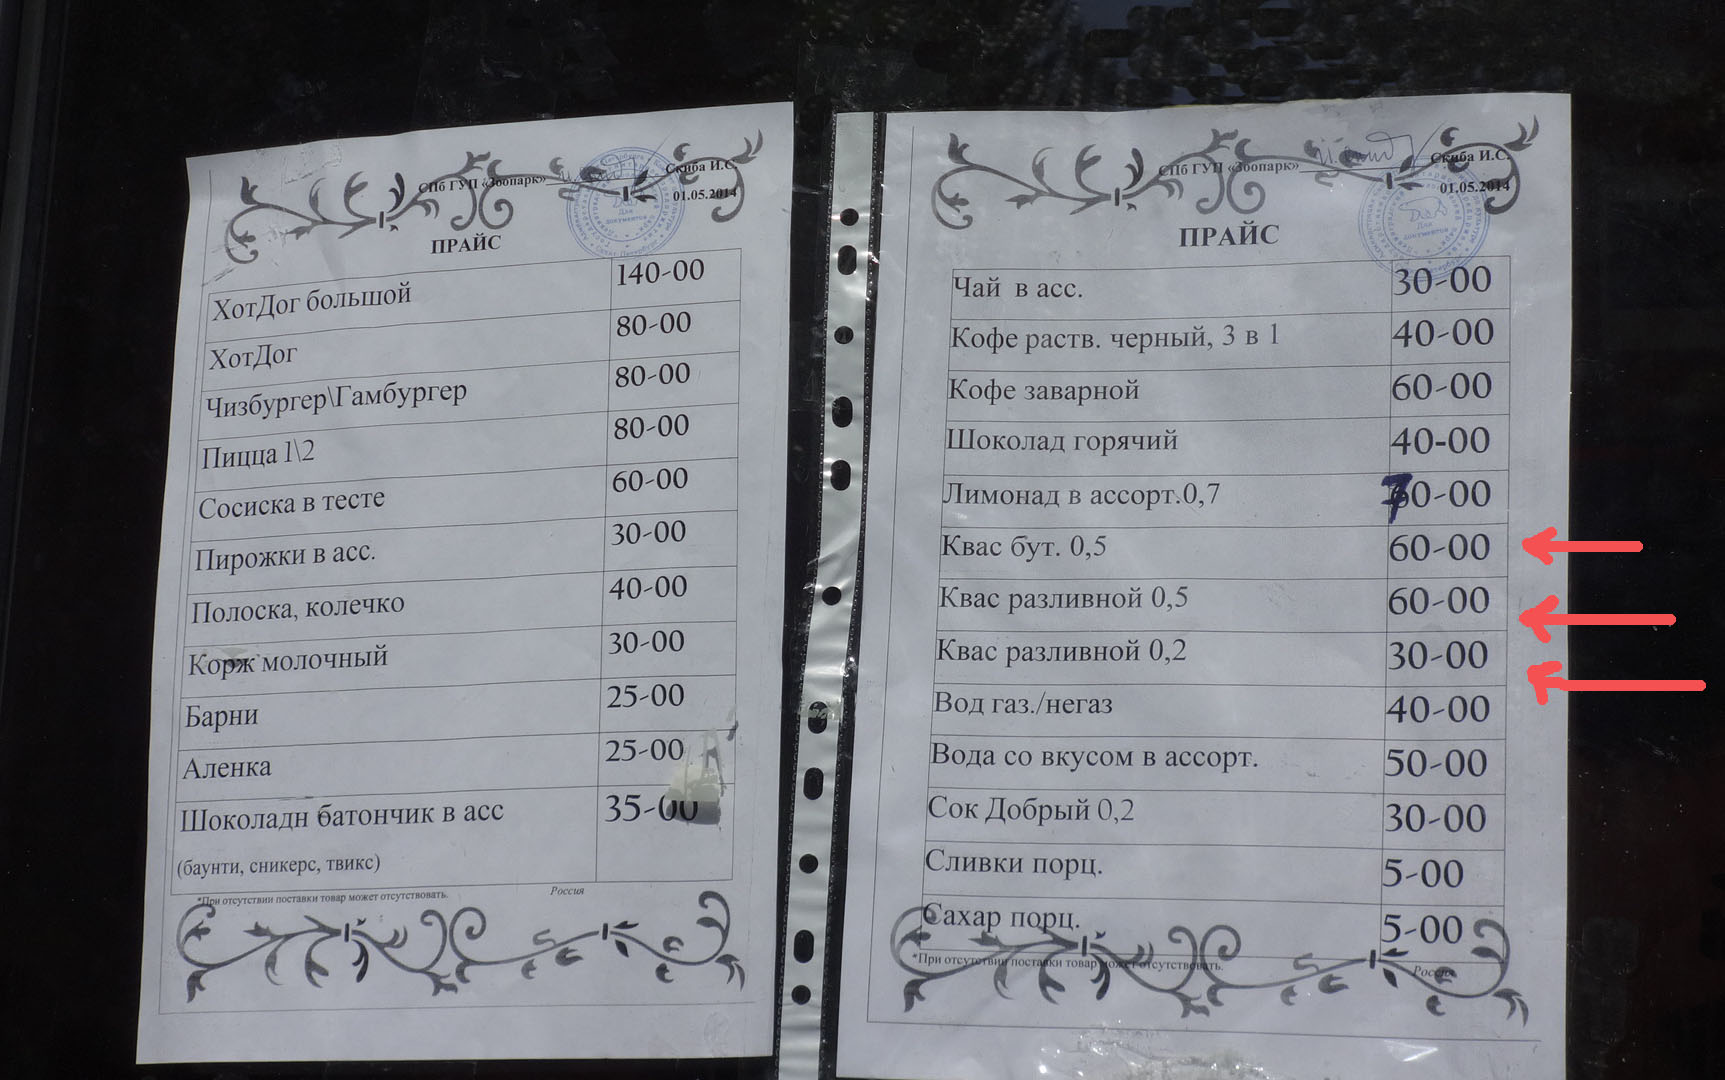 СПб ГУП «Зоопарк» Скиба И.С.
01.05.2014
Для
документов
ПРАЙС
ХотДог большой 140-00
ХотДог 80-00
Чизбургер\Гамбургер 80-00
Пицца 1\2 80-00
Сосиска в тесте 60-00
Пирожки в асс. 30-00
Полоска, колечко 40-00
Корж молочный 30-00
Барни 25-00
Аленка 25-00
Шоколадн батончик в асс 35-00
(баунти, сникерс, твикс)
*При отсутствии поставки товар может отсутствовать. Россия
СПб ГУП «Зоопарк» Скиба И.С.
01.05.2014
Для
документов
ПРАЙС
Чай в асс. 30-00
Кофе раств. черный, 3 в 1 40-00
Кофе заварной 60-00
Шоколад горячий 40-00
Лимонад в ассорт.0,7 70-00
Квас бут. 0,5 60-00
Квас разливной 0,5 60-00
Квас разливной 0,2 30-00
Вод газ./негаз 40-00
Вода со вкусом в ассорт. 50-00
Сок Добрый 0,2 30-00
Сливки порц. 5-00
Сахар порц. 5-00
*При отсутствии поставки товар может отсутствовать. Россия